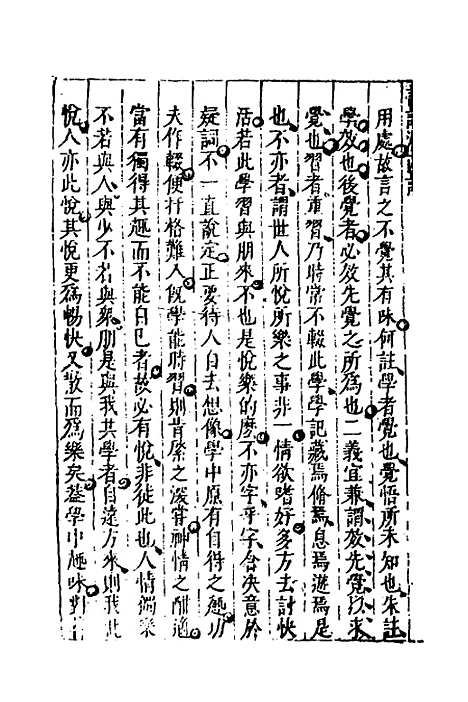 用處故言之不覺其有味何註學者覺也覺悟所未知也朱註
學效也後覺者必效先覺之所爲也二義宜兼謂效先覺以來
覺也習者重習乃時常不輟此學學記藏焉修焉息焉遊焉是
也不亦者謂世人所悅所樂之事非一情欲嗜好多方去討快
活若此學習與朋來不也是悅樂的麽不亦字乎字含決意於
疑詞不一直說定正要待人自去想像學中原有自得之趣功
夫作輟便扞格難入旣學能時習則肯綮之滋㫖神情之酣適
當有獨得其趣而不能自已者故必有悅非徒此也人情獨樂
不若與人與少不若與衆朋是與我共學者自遠方來則我此
悅人亦此悅其悅更爲暢快又散而爲樂矣蓋學中趣味對